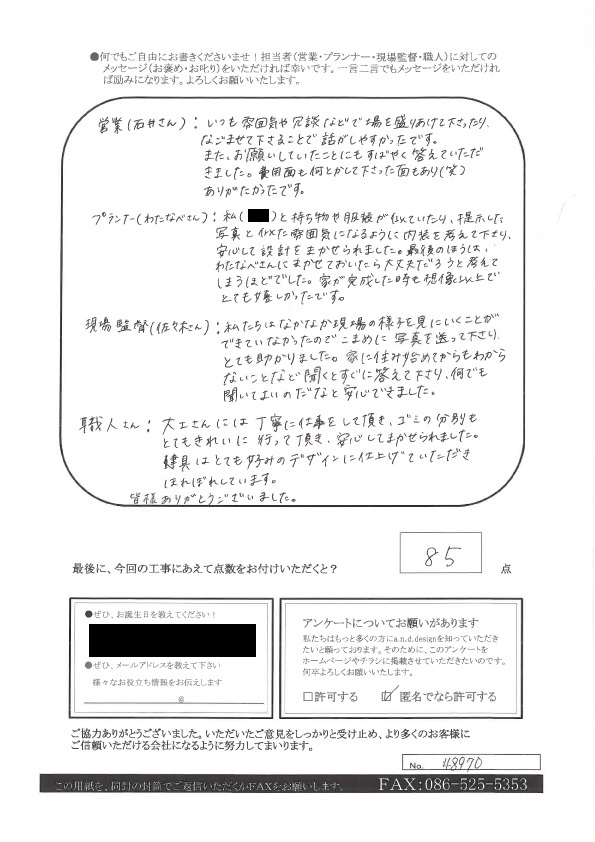 ●何でもご自由にお書きくださいませ！担当者(営業・プランナー・現場監督・職人)に対しての
メッセージ(お褒め・お叱り)をいただければ幸いです。一言二言でもメッセージをいただけれ
ば励みになります。よろしくお願いいたします。
営業(石井さん)：いつも雰囲気や冗談などで場を盛りあげて下さったり、
なごませて下さることで話がしやすかったです。
また、お願いしていたことにもすばやく答えていただ
きました。費用面も何とかして下さった面もあり(笑)
ありがたかったです。
プランナー(わたなべさん)：私( )と持ち物や服装が似ていたり、提示した
写真と似た雰囲気になるように内装を考えて下さり、
安心して設計をまかせられました。最後のほうは、
わたなべさんにまかせておいたら大丈夫だろうと考えて
しまうほどでした。家が完成した時も想像以上で
とても嬉しかったです。
現場監督(佐々木さん)：私たちはなかなか現場の様子を見にいくことが
できていなかったのでこまめに写真を送って下さり、
とても助かりました。家に住み始めてからもわから
ないことなど聞くとすぐに答えて下さり、何でも
聞いてよいのだなと安心できました。
職人さん：大工さんには丁寧に仕事をして頂き、ゴミの分別も
とてもきれいに行って頂き、安心してまかせられました。
建具はとても好みのデザインに仕上げていただき
ほれぼれしています。
皆様ありがとうございました。
最後に、今回の工事にあえて点数をお付けいただくと？ 85 点
●ぜひ、お誕生日を教えてください！
●ぜひ、メールアドレスを教えて下さい
様々なお役立ち情報をお伝えします
@
アンケートについてお願いがあります
私たちはもっと多くの方にa.n.d.designを知っていただき
たいと願っております。そのために、このアンケートを
ホームページやチラシに掲載させていただきたいのです。
何卒よろしくお願いいたします。
□許可する ☑匿名でなら許可する
ご協力ありがとうございました。いただいたご意見をしっかりと受け止め、より多くのお客様に
ご信頼いただける会社になるように努力してまいります。
No. 48970
この用紙を、同封の封筒でご返信いただくかFAXをお願いします。 FAX:086-525-5353